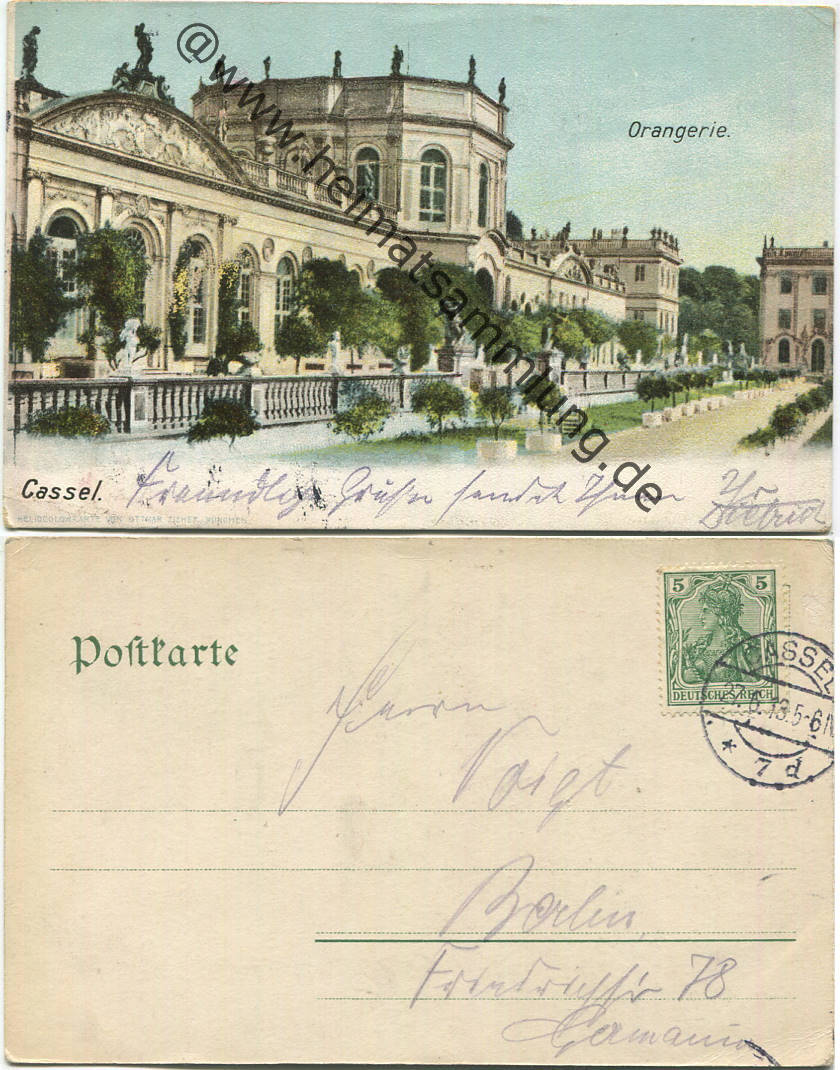 @www.heimatsammlung.de
Orangerie.
Cassel.
Freundlich Grüße sendet Ihnen Ihr
HELIOCOLORKARTE VON OTTMAR ZIEHER, MÜNCHEN
Poſtkarte
5 5
DEUTSCHES REICH
CASSEL
13.5-6N
* 7 d
Herrn
Voigt.
Berlin,
Friedrichstr 78
Germania